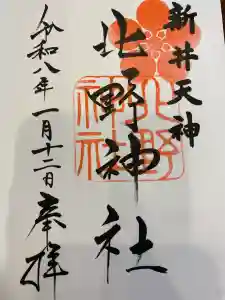 新井天神
北野神社
令和八年一月十二日
奉拝
北野
神社